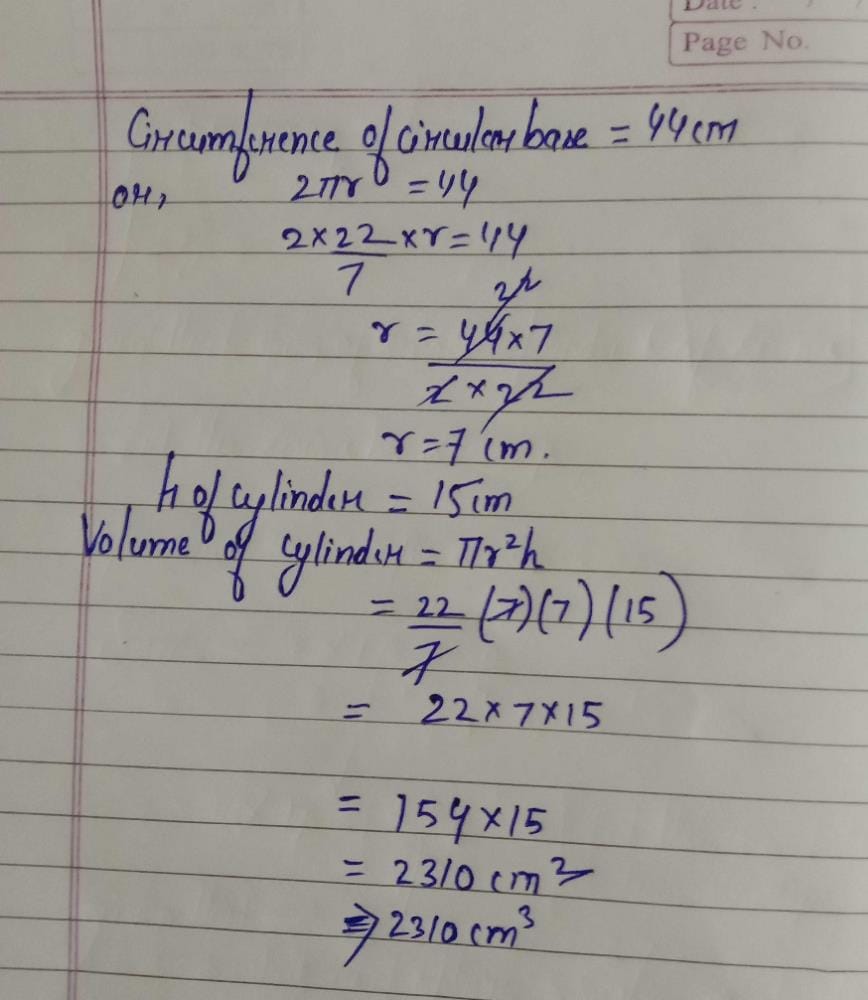 Date :
Page No.
Circumference of circular base = 44 cm
or, 2πr = 44
2 × 22/7 × r = 44
22
r = 44 × 7 / 2 × 22
r = 7 cm.
h of cylinder = 15 cm
Volume of cylinder = πr²h
= 22/7 (7)(7)(15)
= 22 × 7 × 15
= 154 × 15
= 2310 cm²
⇒ 2310 cm³